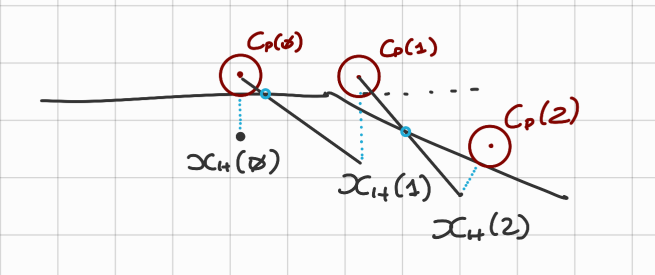 Cp(0)
Cp(1)
Cp(2)
xH(0)
xH(1)
xH(2)